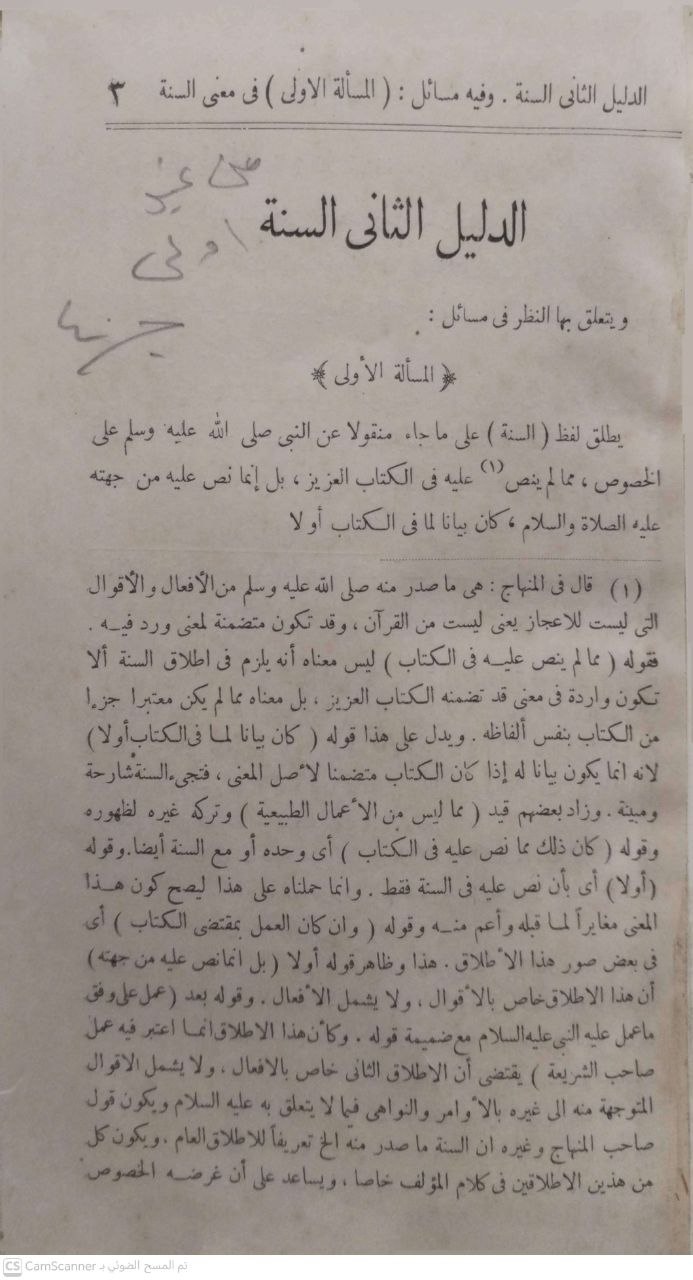 الدليل الثانى السنة . وفيه مسائل : ( المسألة الاولى ) فى معنى السنة ٣
الدليل الثانى السنة
ويتعلق بها النظر فى مسائل :
﴿ المسألة الأولى ﴾
يطلق لفظ ( السنة ) على ما جاء منقولا عن النبى صلى الله عليه وسلم على
الخصوص ، مما لم ينص (١) عليه فى الكتاب العزيز ، بل إنما نص عليه من جهته
عليه الصلاة والسلام ، كان بيانا لما فى الكتاب أو لا
(١) قال فى المنهاج : هى ما صدر منه صلى الله عليه وسلم من الأفعال والأقوال
التى ليست للاعجاز يعنى ليست من القرآن ، وقد تكون متضمنة لمعنى ورد فيه .
فقوله ( مما لم ينص عليه فى الكتاب ) ليس معناه أنه يلزم فى اطلاق السنة ألا
تكون واردة فى معنى قد تضمنه الكتاب العزيز ، بل معناه مما لم يكن معتبرا جزءا
من الكتاب بنفس ألفاظه . ويدل على هذا قوله ( كان بيانا لما فى الكتاب أولا )
لانه انما يكون بيانا له إذا كان الكتاب متضمنا لأصل المعنى ، فتجىء السنة شارحة
ومبينة . وزاد بعضهم قيد ( مما ليس من الأعمال الطبيعية ) وتركه غيره لظهوره
وقوله ( كان ذلك مما نص عليه فى الكتاب ) أى وحده أو مع السنة أيضا . وقوله
(أولا) أى بأن نص عليه فى السنة فقط . وانما حملناه على هذا ليصح كون هذا
المعنى مغايراً لما قبله وأعم منه وقوله ( وان كان العمل بمقتضى الكتاب ) أى
فى بعض صور هذا الأطلاق . هذا وظاهر قوله أولا ( بل انما نص عليه من جهته )
أن هذا الاطلاق خاص بالأقوال ، ولا يشمل الأفعال . وقوله بعد ( عمل على وفق
ما عمل عليه النبى عليه السلام مع ضميمة قوله . وكأن هذا الاطلاق انما اعتبر فيه عمل
صاحب الشريعة ) يقتضى أن الاطلاق الثانى خاص بالافعال ، ولا يشمل الاقوال
المتوجهة منه الى غيره بالأوامر والنواهى فيما لا يتعلق به عليه السلام ويكون قول
صاحب المنهاج وغيره ان السنة ما صدر منه الخ تعريفاً للاطلاق العام ، ويكون كل
من هذين الاطلاقين فى كلام المؤلف خاصا ، ويساعد على أن غرضه الخصوص
CS CamScanner تم المسح الضوئي بـ